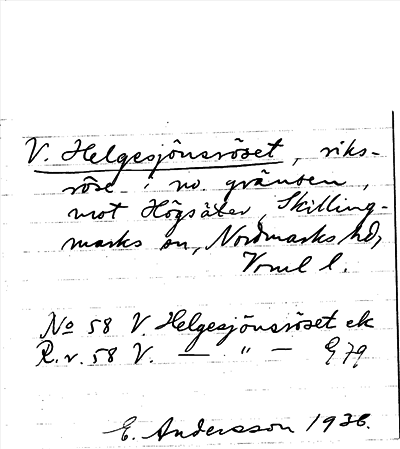 V. Helgesjönsröset, riks-
röse i no. gränsen,
mot Högsäter, Skilling-
marks sn, Nordmarks hd,
Vrml l.
No 58 V. Helgesjönsröset ek
R.r. 58 V. — " — G 79
E. Andersson 1936.